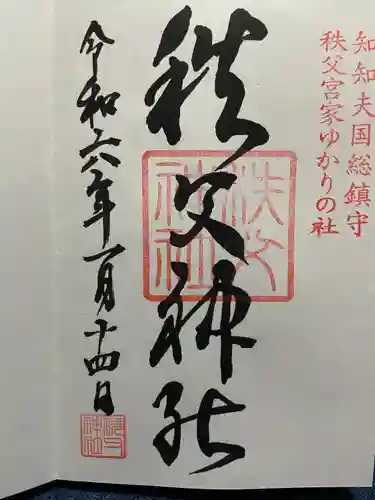 知知夫国総鎮守
秩父宮家ゆかりの社
秩父神社
秩父
神社
令和六年一月十四日
秩父
神社